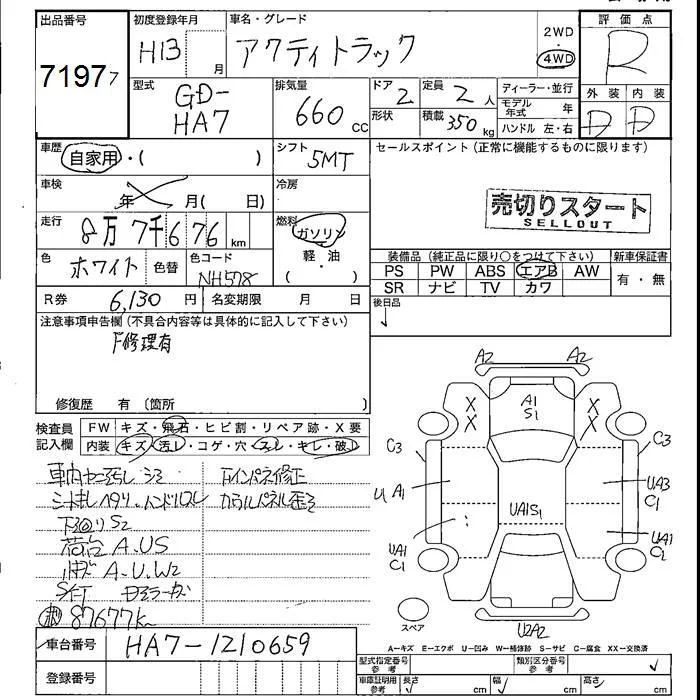 出品番号 初度登録年月 車名・グレード 2WD 4WD 評価点
71977 H13 月 アクティトラック R
型式 GD-HA7 排気量 660 cc ドア 2 定員 2 人 ディーラー・並行 外装 内装
形状 積載 350 kg モデル年式 年 D D
ハンドル 左・右
車歴 自家用・( ) シフト 5MT セールスポイント(正常に機能するものに限ります)
車検 年 月( 日) 冷房
売切りスタート
SELLOUT
走行 8万7千676 km 燃料 ガソリン 軽・油
色 ホワイト 色替 色コード NH578
装備品(純正品に限り○をつけて下さい) 新車保証書
PS PW ABS エアB AW 有・無
SR ナビ TV カワ
R券 6,130 円 名変期限 月 日 後日品
注意事項申告欄(不具合内容等は具体的に記入して下さい)
F修理有
修復歴 有(箇所 )
検査員記入欄 FW キズ・飛石・ヒビ割・リペア跡・X要
内装 キズ・汚レ・コゲ・穴・スレ・キレ・破レ
下回りS2
荷台A.US
A.U.W2
87677k
A2 A2
A1
S1
X X
X X
C3 C3
U A1 UA3
C1
UA1S1
UA1 UA1
C1 C2
スペア
U2A2
A-キズ E-エクボ U-凹み W-補修跡 S-サビ C-腐食 XX-交換済
車台番号 HA7-1210659
登録番号
型式指定番号 参考 類別区分番号 参考
車庫証明用 参考 長さ cm 幅 cm 高さ cm